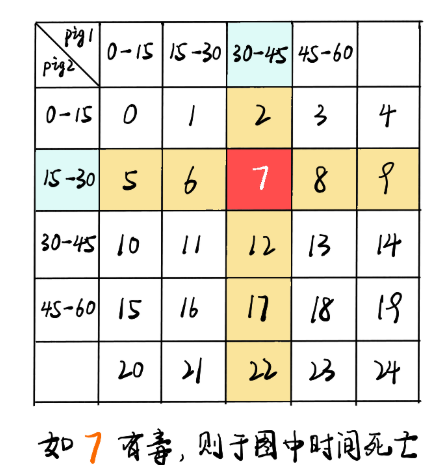 pig1
pig2
0-15 15-30 30-45 45-60
0-15 0 1 2 3 4
15-30 5 6 7 8 9
30-45 10 11 12 13 14
45-60 15 16 17 18 19
20 21 22 23 24
如 7 有毒,则于图中时间死亡